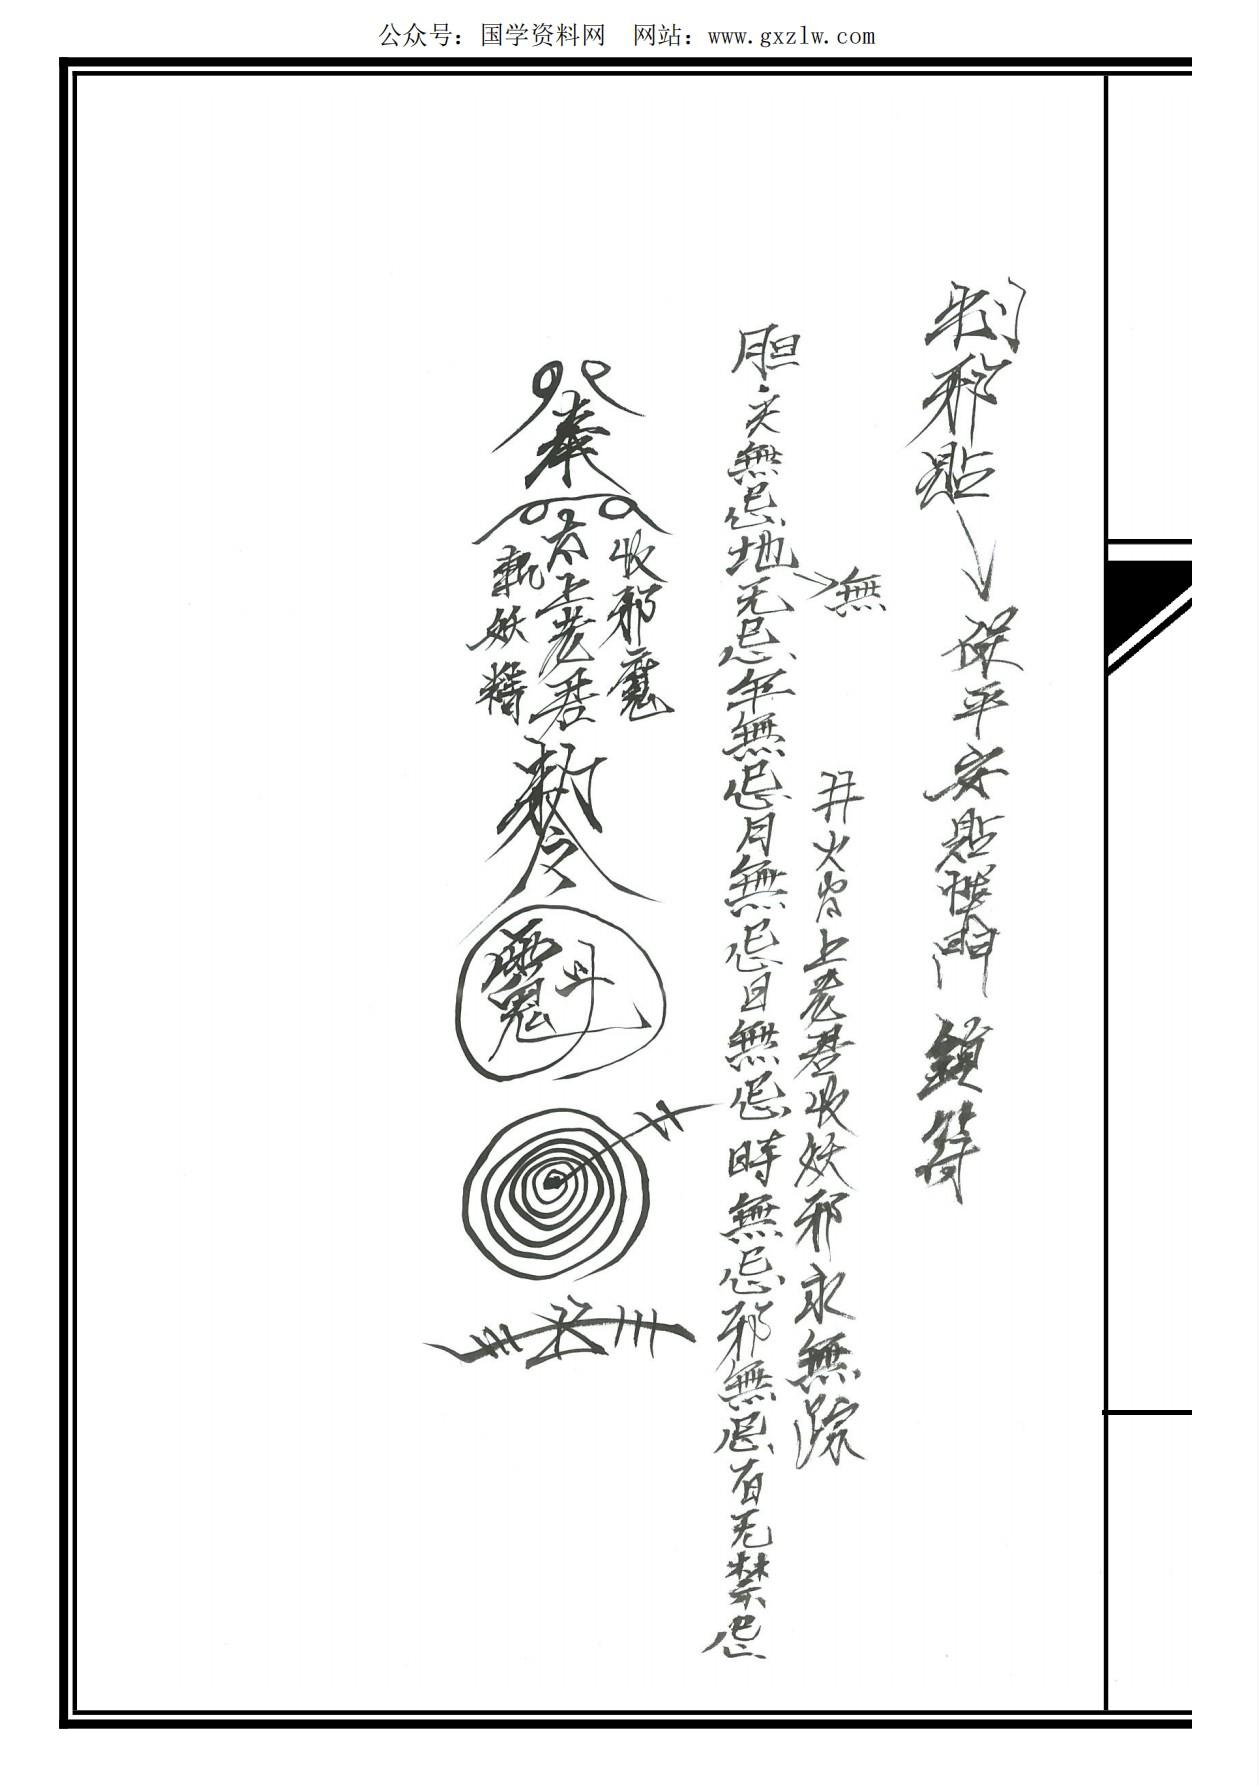 公众号：国学资料网　网站：www.gxzlw.com
制邪貼
保平安貼 門 鎖符
無
火 上老君收妖邪永無踪
胆天無忌地无忌年無忌月無忌日無忌時無忌邪無忌百无禁忌
奉
收邪魔
太上老君
斬妖精
敕令